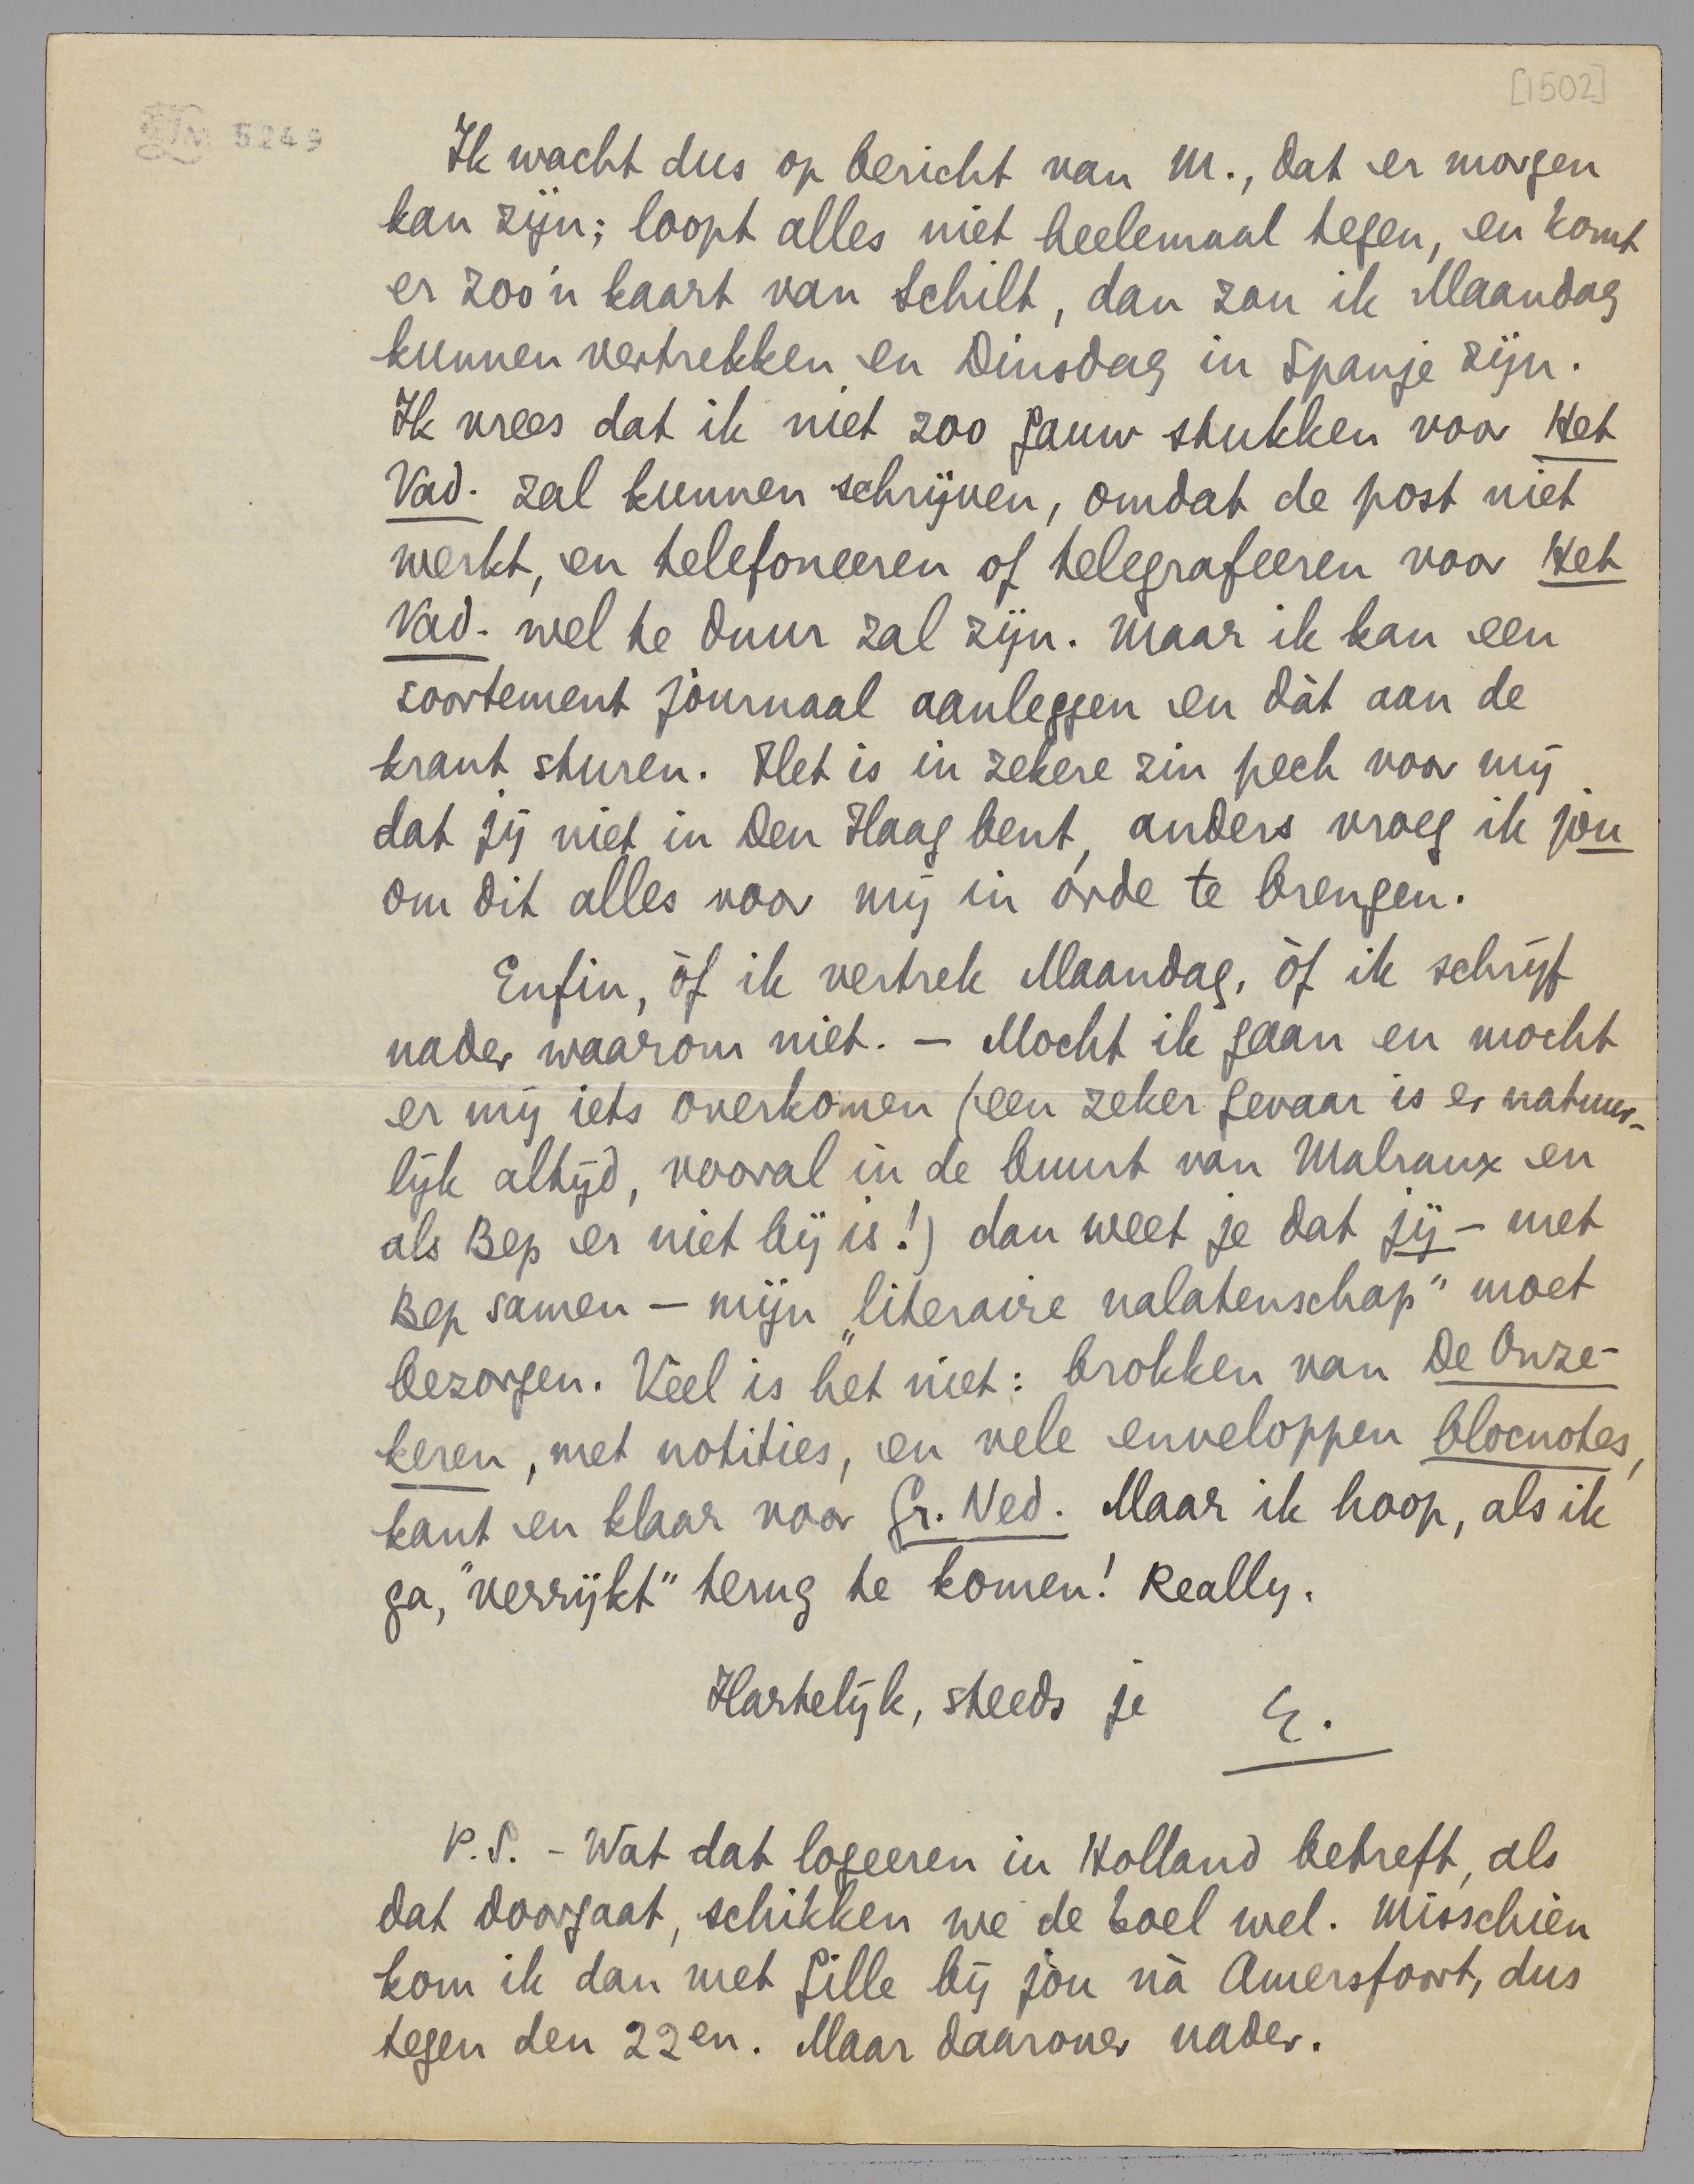 [1502]
LM 5249
Ik wacht dus op bericht van M., dat er morgen
kan zijn; loopt alles niet heelemaal tegen, en komt
er zoo'n kaart van Schilt, dan zou ik Maandag
kunnen vertrekken en Dinsdag in Spanje zijn.
Ik vrees dat ik niet zoo gauw stukken voor Het
Vad. zal kunnen schrijven, omdat de post niet
werkt, en telefoneeren of telegrafeeren voor Het
Vad. wel te duur zal zijn. Maar ik kan een
soortement journaal aanleggen en dàt aan de
krant sturen. Het is in zekere zin pech voor mij
dat jij niet in Den Haag bent, anders vroeg ik jou
om dit alles voor mij in orde te brengen.
Enfin, òf ik vertrek Maandag, òf ik schrijf
nader waarom niet. — Mocht ik gaan en mocht
er mij iets overkomen (een zeker gevaar is er natuur-
lijk altijd, vooral in de buurt van Malraux en
als Bep er niet bij is!) dan weet je dat jij — met
Bep samen — mijn „literaire nalatenschap" moet
bezorgen. Veel is het niet: brokken van De Onze-
keren, met notities, en vele enveloppen blocnotes,
kant en klaar voor Gr. Ned. Maar ik hoop, als ik
ga, "verrijkt" terug te komen! Really.
Hartelijk, steeds je E.
P.S. - Wat dat logeeren in Holland betreft, als
dat doorgaat, schikken we de boel wel. Misschien
kom ik dan met Gille bij jòu nà Amersfoort, dus
tegen den 22en. Maar daarover nader.